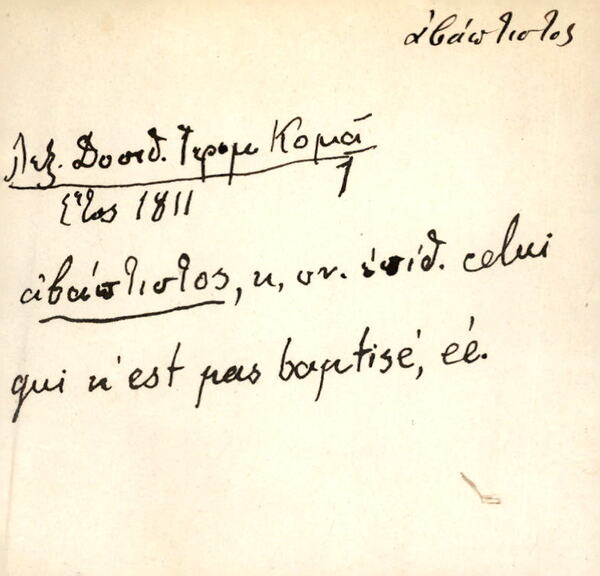 ἀβάπτιστος
Λεξ. Δοσιθ. Ἱερομ Κομᾶ
1
ἔτος 1811
ἀβάπτιστος, η, ον. ἐπίθ. celui
qui n'est pas baptisé, éé.